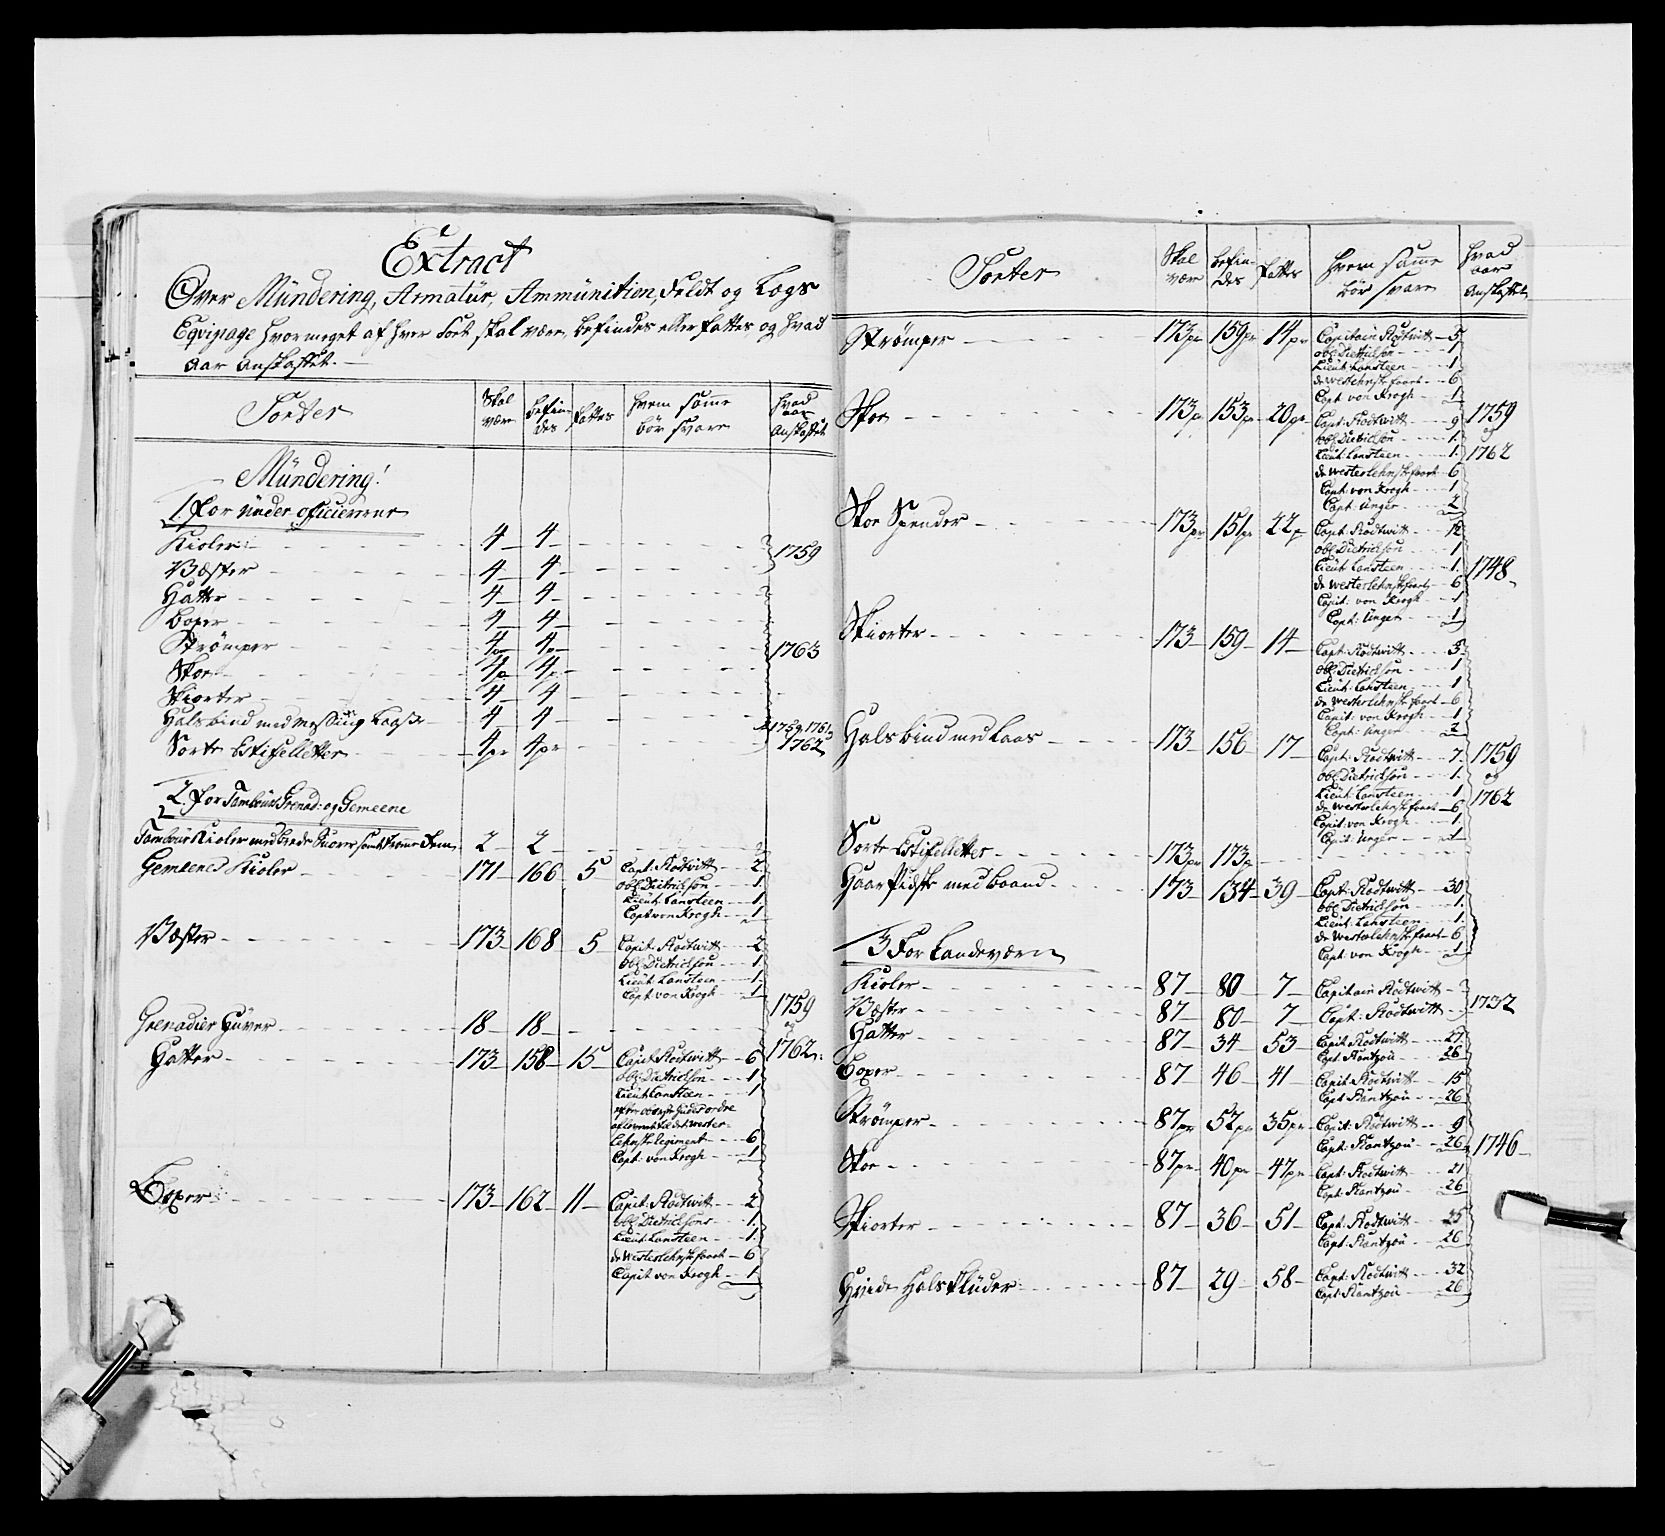 Extract
Over Mündering, Armatür, Ammünition, Feldt og Logs
Eqvipage hvor meget af hver Sort skal være, befindes eller fattes, og hvad
Aar Anskaffet.
Sorter Skal være befindes fattes hvem samme bør svare hvad aar Anskaffet
Mündering!
1. For Under officiererne
Kioler 4 4 1759
Væster 4 4
Hatte 4 4
Boxer 4 4
Strømper 4pr 4pr 1763
Skoe 4p 4p
Skiorter 4 4
Halsbind med Messing Laase 4 4 1759, 1761
Sorte Estifelletter 4pr 4pr 1762
2. For Tambour, Grenad: og Gemeene
Tambour Kioler med brede Snorer 2 2
Gemeene Kioler 171 166 5 Capt: Rodtwitt 2
obl: Dietrichson 1
Lieut: Lansteen 1
Capt von Krogh 1
Væster 173 168 5 Capit: Rodtwitt 2
obl: Dietrichson 1
Lieut: Lansteen 1
Capt: von Krogh 1
1759
og
Grenadier Huver 18 18
Hatter 173 158 15 Capit: Rodtwitt 6 1762
obl: Dietrichson 1
Lieut: Lansteen 1
efter ordre
Lehnske Regiment 6
Capt: von Krogh 1
Boxer 173 162 11 Capit: Rodtwitt 2
obl: Dietrichson 1
Lieut: Lansteen 1
de Westerlehnske faaet 6
Capit von Krogh 1
Sorter Skal være befindes fattes hvem samme bør svare hvad aar Anskaffet
Strømper 173pr 159pr 14pr Capitain Rodtwitt 5
obl: Dietrichson 1
Lieut: Lansteen 1
de Westerlehnske faaet 6
Capt von Krogh 1
Skoe 173p 153pr 20pr Capt: Rodtwitt 9 1759
obl: Dietrichson 1 og
Lieut: Lansteen 1 1762
de Westerlehnske faaet 6
Capt: von Krogh 1
Capt: Unger 2
Skoe Spender 173pr 151pr 22p Capt: Rodtwitt 12
obl: Dietrichson 1
Lieut: Lansteen 1 1748
de Westerlehnske faaet 6
Capit: von Krogh 1
Capt: Unger 1
Skiorter 173 159 14 Capt: Rodtwitt 3
obl: Dietrichson 1
Lieut: Lansteen 1
de Westerlehnske faaet 6
Capit: von Krogh 1
Capt: Unger 2
Halsbind med Laas 173 156 17 Capt: Rodtwitt 7 1759
obl: Dietrichson 1 og
Lieut: Lansteen 1 1762
de Westerlehnske faaet 6
Capit: von Krogh 1
Capit: Unger 1
Sorte Estifelletter 173pr 173p
Haar Pidske med Baand 173 134 39 Capt: Rodtwitt 30
obl: Dietrichson 1
Lieut: Lansteen 1
de Westerlehnske faaet 6
Capt: von Krogh 1
3 For Landeværn
Kioler 87 80 7 Capitain Rodtwitt
Væster 87 80 7 Capt: Rodtwitt 1732
Hatter 87 34 53 Capit: Rodtwitt 27
Capt: Rantzou 26
Boxer 87 46 41 Capit: Rodtwitt 15
Capt Rantzou 26
Strømper 87pr 52pr 35pr Capit: Rodtwitt 9
Capt: Rantzou 26 1746
Skoe 87pr 40pr 47pr Capt: Rodtwitt 21
Capt: Rantzou 26
Skiorter 87 36 51 Capt: Rodtwitt 25
Capt: Rantzou 26
Hvide Halsklüder 87 29 58 Capt: Rodtwitt 32
Capt: Rantzou 26